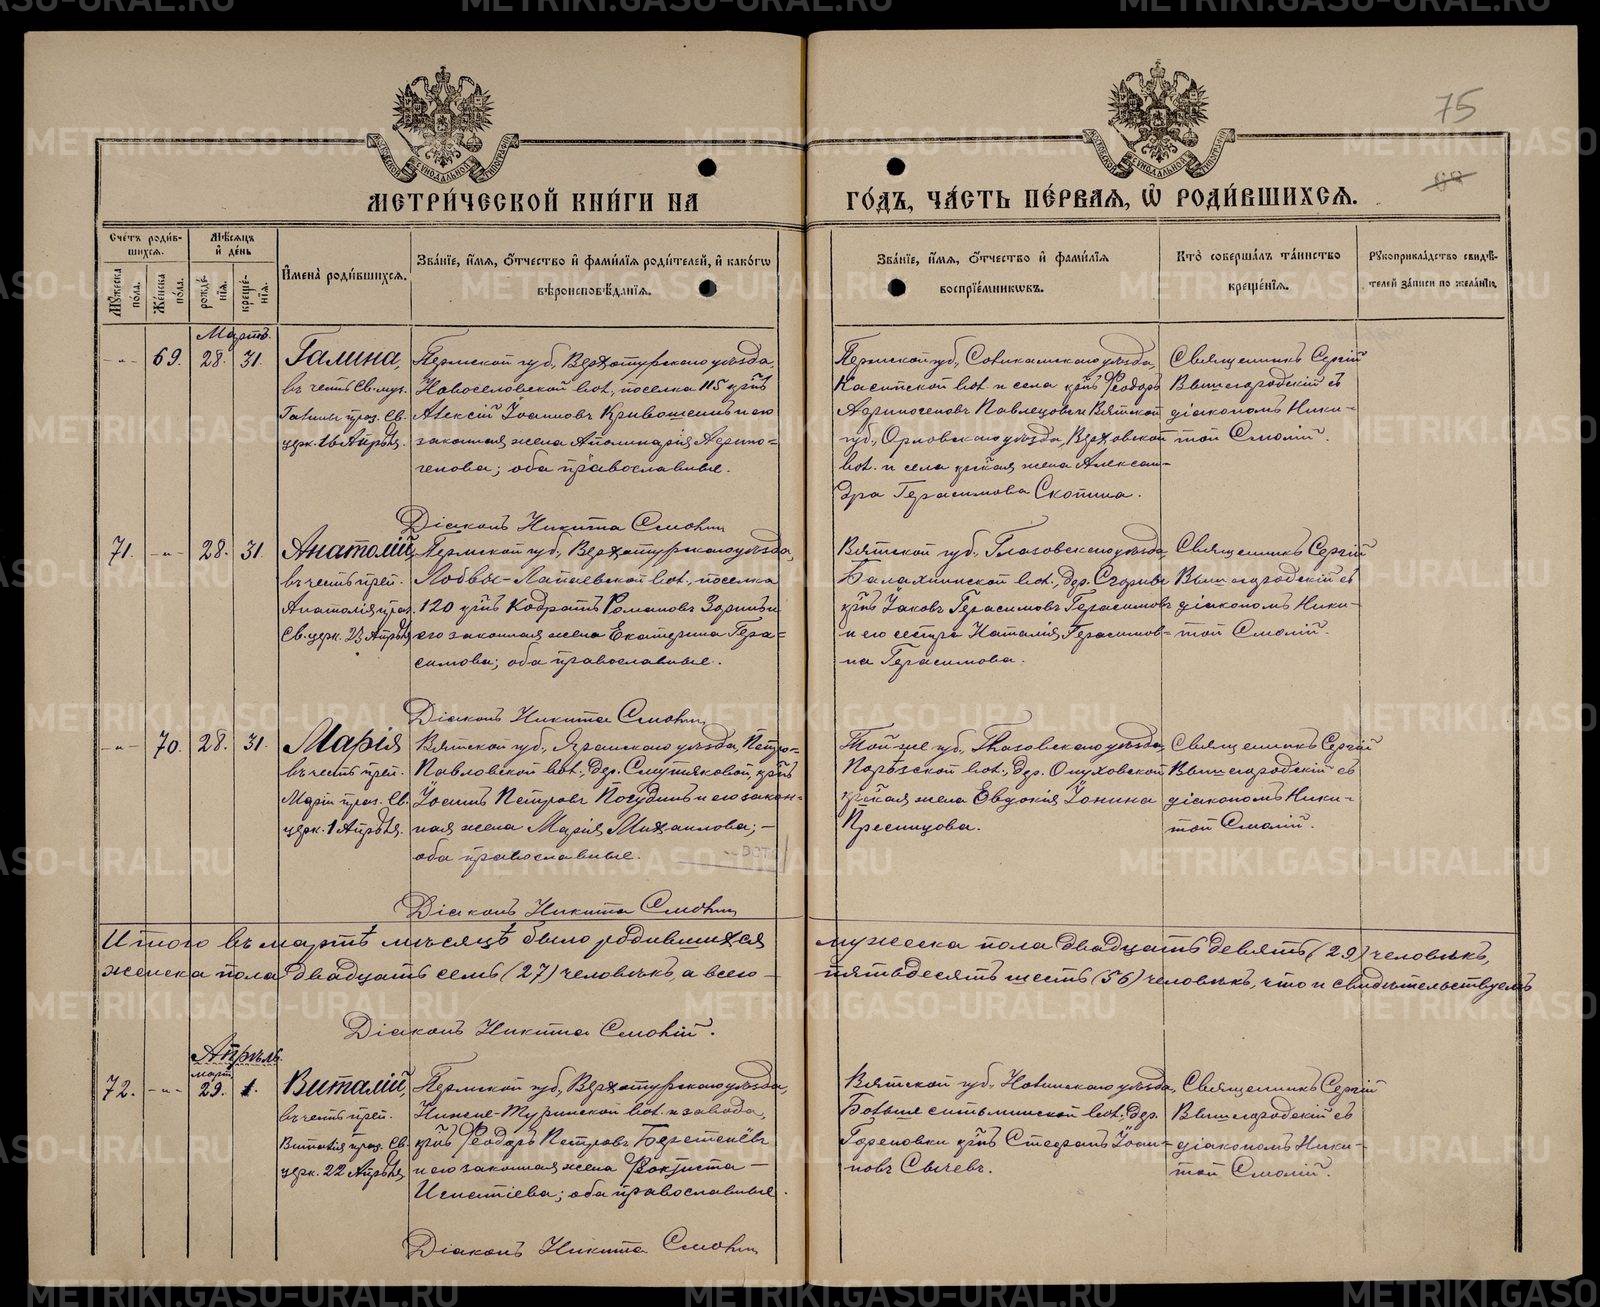 75
МЕТРИ́ЧЕСКОЙ КНИ́ГИ НА ГО́ДЪ, ЧА́СТЬ ПЕ́РВАЯ, Ѿ РОДИ́ВШИХСЯ.
Сче́тъ роди́в-
шихся.
Мѣ́сяцъ
и де́нь
Мꙋ́жеска
пола.
Же́нска
пола.
рожде́-
нїя.
креще́-
нїя.
Имена̀ роди́вшихся.
Зва́нїе, и́мя, ѻ́тчество и фами́лїя роди́телей, и како́гѡ
вѣроисповѣ́данїя.
Зва́нїе, и́мя, ѻ́тчество и фами́лїя
воспрїе́мникѡвъ.
Кто̀ соверша́лъ та́инство
креще́нїя.
Рꙋкоприкла́дство свидѣ́-
телей за́писи по жела́нїю.
Мартъ.
-"- 69. 28. 31.
Галина,
въ честь Св. муч.
Галины праз. Св.
церк. 16 Апрѣля.
Пермской губ., Верхотурскаго уѣзда,
Новоселовской вол., поселка 115 кр҃нъ
Алексій Іоанновъ Кривошеинъ и его
законная жена Аполинарія Адріано-
генова; оба православные.
Пермской губ., Соликамскаго уѣзда,
Касибской вол. и села кр҃нъ Ѳеодоръ
Павлецовъ и Вятской
губ., Орловскаго уѣзда, Верховской
вол. и села кр҃ская жена Алексан-
дра Герасимова Скопина.
Священникъ Сергій
Вышегородскій съ
діакономъ Ники-
той Смолій.
Діаконъ Никита Смолій
71. -"- 28. 31.
Анатолій,
въ честь преп.
Анатолія праз.
Св. церк. 23 Апрѣля
Пермской губ., Верхотурскаго уѣзда,
Лобвы-Лапаевской вол., поселка
120 кр҃нъ Кодратъ Романовъ Зоринъ и
его законная жена Екатерина Гера-
симова; оба православные.
Вятской губ., Глазовскаго уѣзда
Балахнинской вол., дер.
кр҃нъ Іаковъ Герасимовъ Герасимовъ
и его сестра Наталія Герасимов-
на Герасимова.
Священникъ Сергій
Вышегородскій съ
діакономъ Ники-
той Смолій.
Діаконъ Никита Смолій
-"- 70. 28. 31.
Марія
въ честь преп.
Маріи праз. Св.
церк. 1 Апрѣля.
Вятской губ., Яранскаго уѣзда, Петро-
Павловской вол., дер. Смутняковой, кр҃нъ
Іосифъ Петровъ Погудинъ и его закон-
ная жена Марія Михаилова; -
оба православные.
Той-же губ., Глазовскаго уѣзда,
Порѣзской вол., дер. Опуховской
кр҃ская жена Евдокія Іонина
Пресницова.
Священникъ Сергій
Вышегородскій съ
діакономъ Ники-
той Смолій.
Діаконъ Никита Смолій
Итого въ мартѣ мѣсяцѣ было родившихся мужеска пола двадцать девять (29) человѣкъ,
женска пола двадцать семь (27) человѣкъ, а всего - пятьдесятъ шесть (56) человѣкъ, что и свидѣтельствуемъ
Діаконъ Никита Смолій.
Апрѣль.
март
72. -"- 29. 1.
Виталій,
въ честь преп.
Виталія праз. Св.
церк. 22 Апрѣля
Пермской губ., Верхотурскаго уѣзда,
Нижне-Туринской вол. и завода,
кр҃нъ Ѳеодоръ Петровъ Берстенёвъ
и его законная жена Ѳоктиста -
Игнатіева; оба православные.
Вятской губ., Нолинскаго уѣзда,
Больше ситьминской вол., дер.
Гореловки кр҃нъ Стефанъ Іоан-
новъ Сычевъ.
Священникъ Сергій
Вышегородскій съ
діакономъ Ники-
той Смолій.
Діаконъ Никита Смолій
METRIKI.GASO-URAL.RU